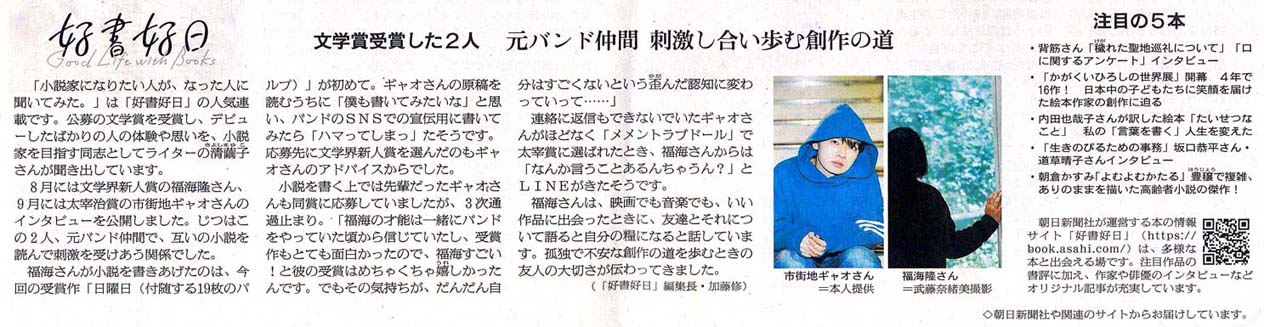 好書好日
Good Life with Books
文学賞受賞した２人　元バンド仲間 刺激し合い歩む創作の道
「小説家になりたい人が、なった人に
聞いてみた。」は「好書好日」の人気連
載です。公募の文学賞を受賞し、デビュ
ーしたばかりの人の体験や思いを、小説
家を目指す同志としてライターの清繭子
さんが聞き出しています。
８月には文学界新人賞の福海隆さん、
９月には太宰治賞の市街地ギャオさんの
インタビューを公開しました。じつはこ
の２人、元バンド仲間で、互いの小説を
読んで刺激を受けあう関係でした。
福海さんが小説を書きあげたのは、今
回の受賞作「日曜日（付随する19枚のパ
ルプ）」が初めて。ギャオさんの原稿を
読むうちに「僕も書いてみたいな」と思
い、バンドのＳＮＳでの宣伝用に書いて
みたら「ハマってしまっ」たそうです。
応募先に文学界新人賞を選んだのもギャ
オさんのアドバイスからでした。
小説を書く上では先輩だったギャオさ
んも同賞に応募していましたが、３次通
過止まり。「福海の才能は一緒にバンド
をやっていた頃から信じていたし、受賞
作もとても面白かったので、福海すごい
！と彼の受賞はめちゃくちゃ嬉しかった
んです。でもその気持ちが、だんだん自
分はすごくないという歪んだ認知に変わ
っていって……」
連絡に返信もできないでいたギャオさ
んがほどなく「メメントラブドール」で
太宰賞に選ばれたとき、福海さんからは
「なんか言うことあるんちゃうん？」と
ＬＩＮＥがきたそうです。
福海さんは、映画でも音楽でも、いい
作品に出会ったときに、友達とそれにつ
いて語ると自分の糧になると話していま
す。孤独で不安な創作の道を歩むときの
友人の大切さが伝わってきました。
（「好書好日」編集長・加藤修）
市街地ギャオさん
＝本人提供
福海隆さん
＝武藤奈緒美撮影
注目の５本
・背筋さん「穢れた聖地巡礼について」「口
に関するアンケート」インタビュー
・「かがくいひろしの世界展」開幕　４年で
16作！　日本中の子どもたちに笑顔を届け
た絵本作家の創作に迫る
・内田也哉子さんが訳した絵本「たいせつな
こと」　私の「言葉を書く」人生を変えた
・「生きのびるための事務」坂口恭平さん・
道草晴子さんインタビュー
・朝倉かすみ「よむよむかたる」豊穣で複雑、
ありのままを描いた高齢者小説の傑作！
朝日新聞社が運営する本の情報
サイト「好書好日」（https://
book.asahi.com/）は、多様な
本と出会える場です。注目作品の
書評に加え、作家や俳優のインタビューなど
オリジナル記事が充実しています。
◇朝日新聞社や関連のサイトからお届けしています。